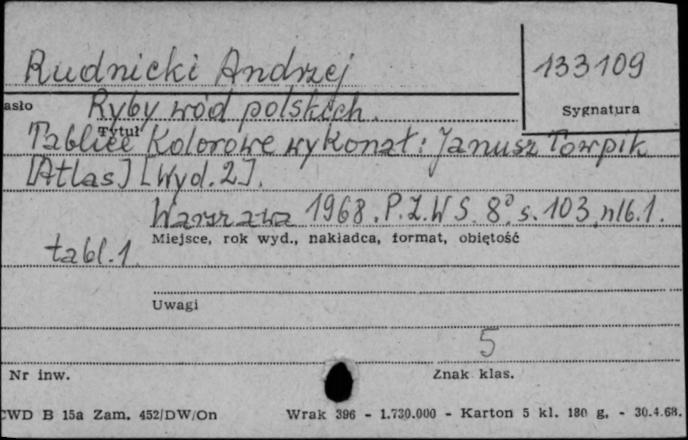 Rudnicki Andrzej
133109
asło
Ryby wód polskich.
Sygnatura
Tytuł
Tablice Kolorowe wykonał: Janusz Towpik
[Atlas] [Wyd. 2].
Warszawa 1968. P.Z.W.S. 8°. s. 103, nlb. 1.
Miejsce, rok wyd., nakładca, format, objętość
tabl. 1.
Uwagi
5
Nr inw.
Znak klas.
CWD B 15a Zam. 452/DW/On
Wrak 396 - 1.730.000 - Karton 5 kl. 180 g. - 30.4.68.